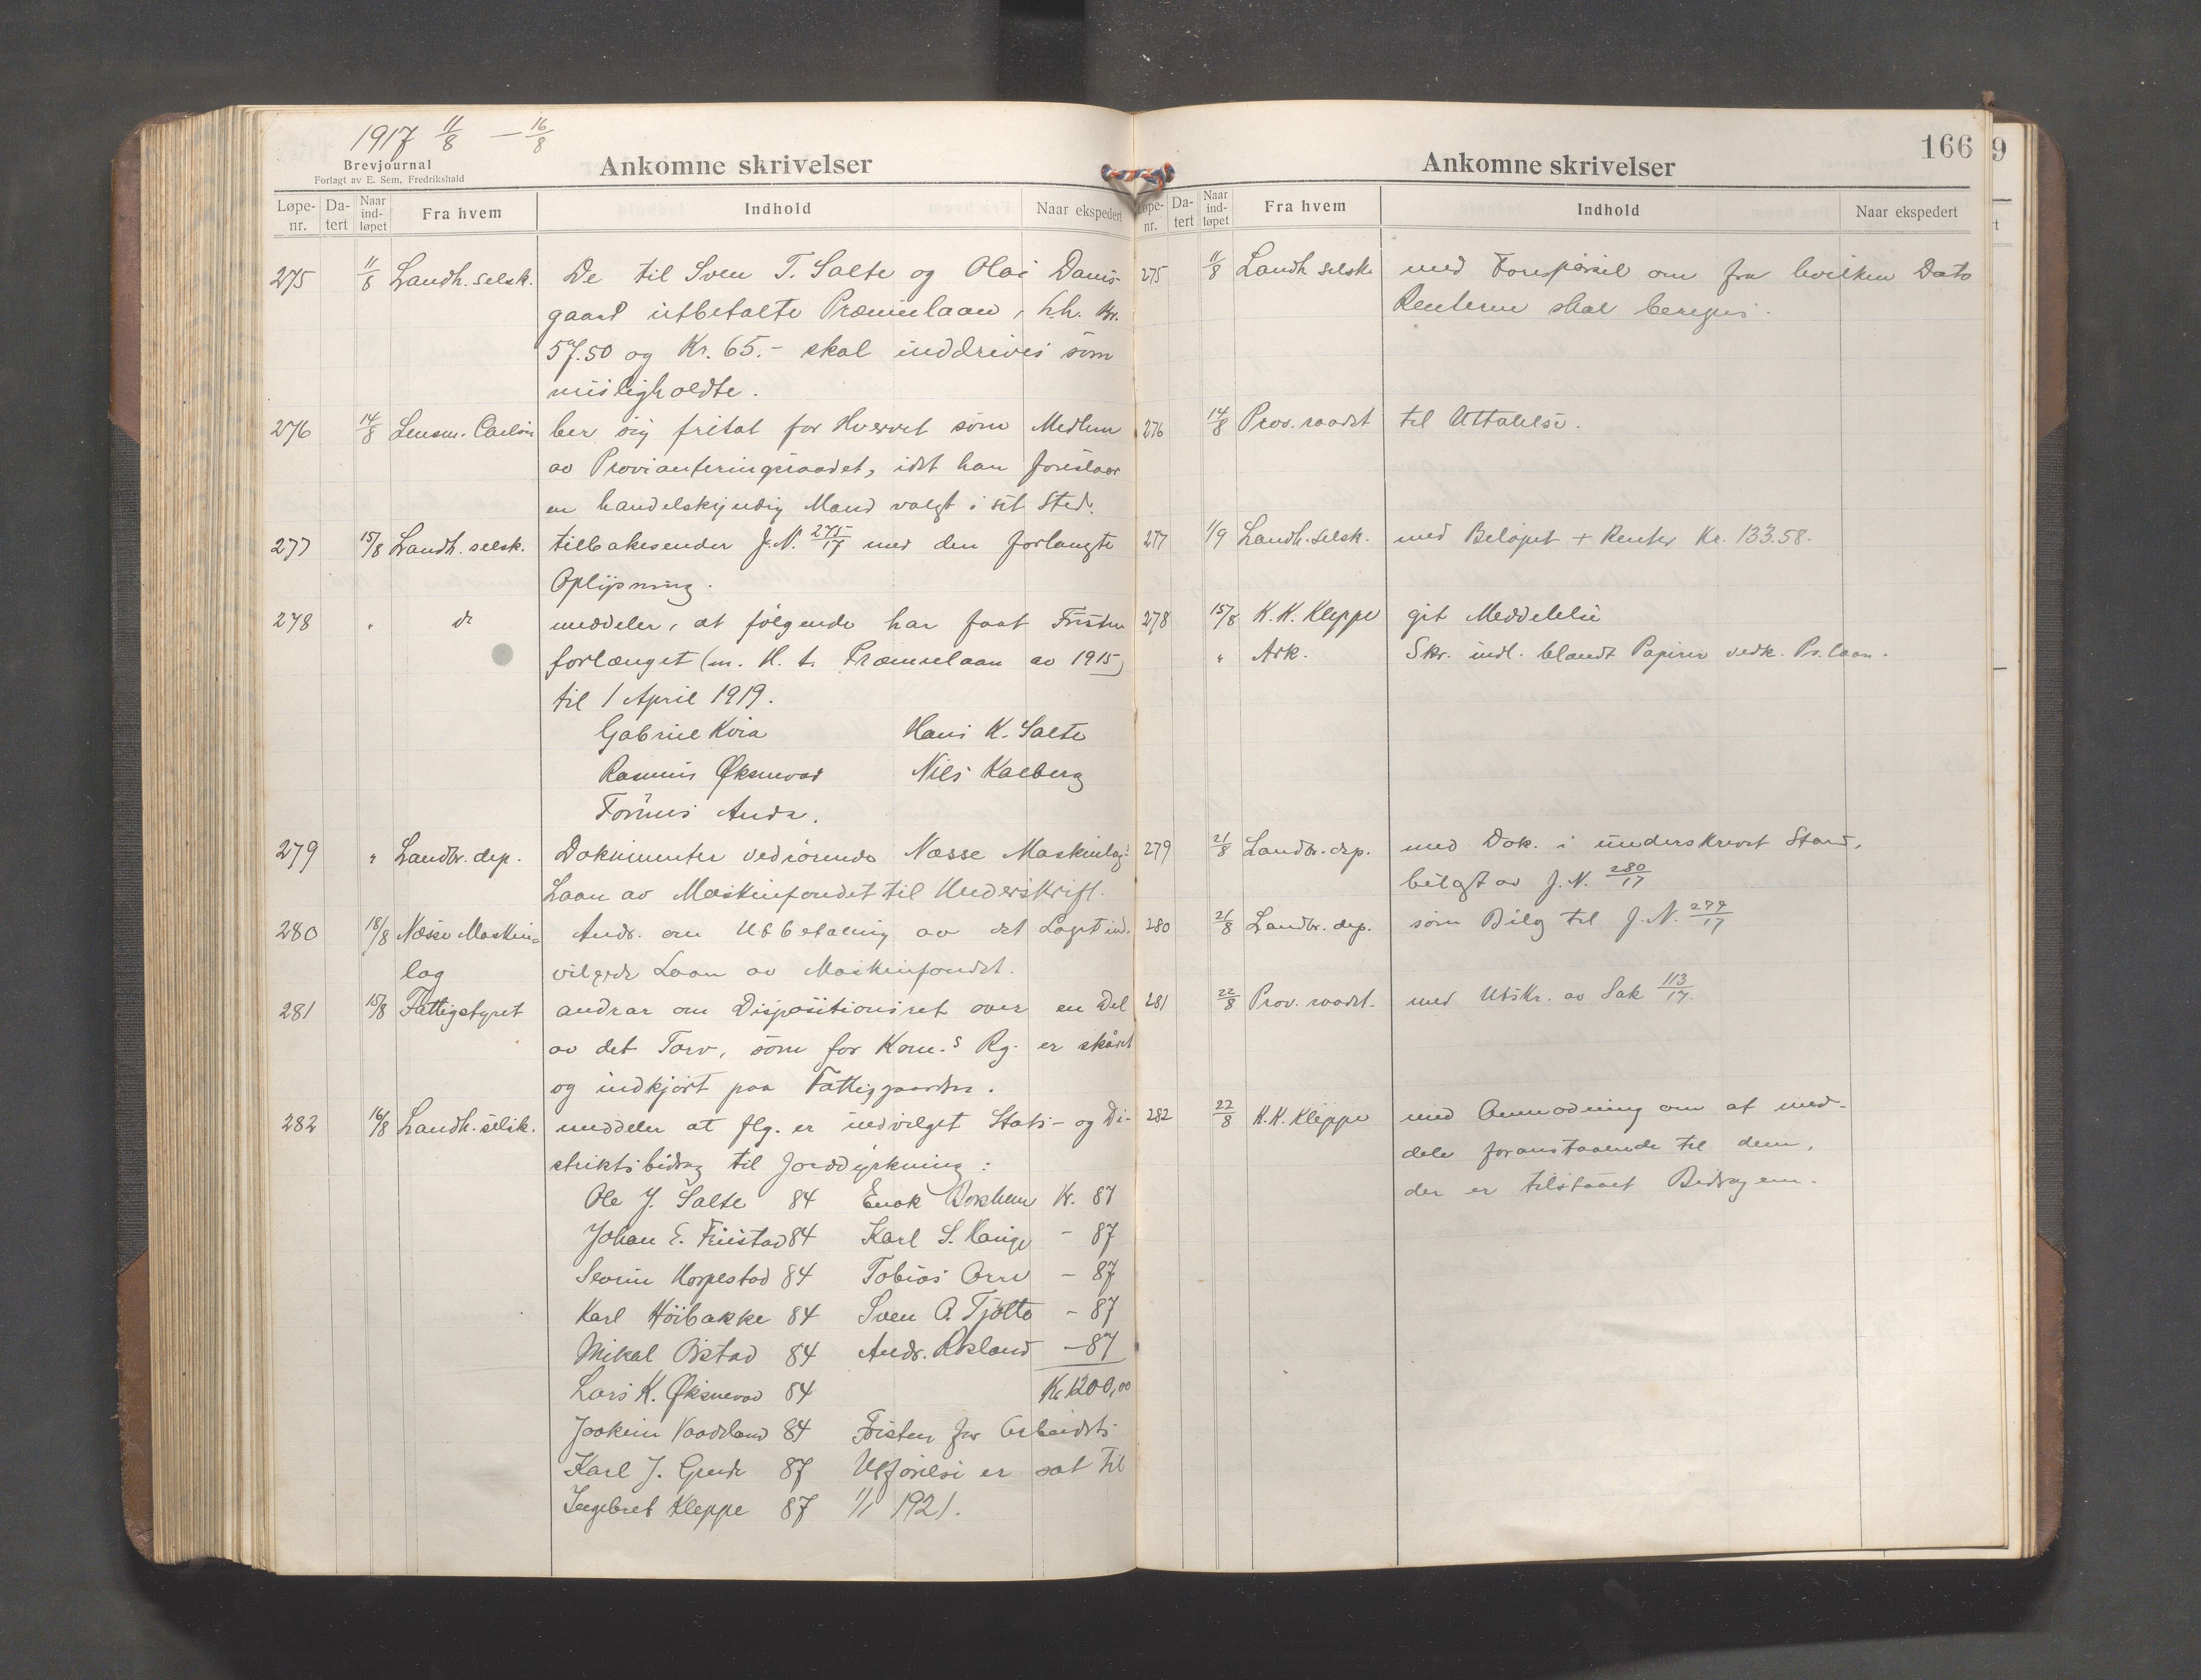 1917 11/8 — 16/8
Brevjournal
Forlagt av E. Sem, Fredrikshald
Ankomne skrivelser
Løpe-nr. Da-tert Naar ind-løpet Fra hvem Indhold Naar ekspedert
275 11/8 Landh. selsk. De til Sven T. Salte og Olai Dams-
gaard utbetalte Præmielaan, hh. Kr.
57.50 og Kr. 65.- skal inddrives som
misligholdte.
276 14/8 Lensm. Carlsen ber sig fritat for Hvervet som Medlem
av Provianteringsraadet, idet han foreslaar
en handelskyndig Mand valgt i sit Sted.
277 15/8 Landh. selsk. tilbakesender J.N. 275/17 med den forlangte
Oplysning.
278 " do meddeler, at følgende har faat Fristen
forlænget (m. H. t. Præmielaan av 1915)
til 1 April 1919.
Gabriel Kvia Hans K. Salte
Rasmus Øksnevad Nils Kalberg
Tønnes Anda.
279 " Landbr. dep. Dokumenter vedrørende Næsse Maskinlags
Laan av Maskinfondet til Underskrift.
280 18/8 Næsse Maskin- Andr. om Utbetaling av det Laget ind-
lag vilgede Laan av Maskinfondet.
281 15/8 Fattigstyret andrar om Dispositionsret over en Del
av det Torv, som for Kom.s Rg. er skåret
og indkjørt paa Fattiggaarden.
282 16/8 Landh. selsk. meddeler at flg. er indvilget Stats- og Di-
striktsbidrag til Jorddyrkning:
Ole J. Salte 84 Enok Kr. 87
Johan E. Friestad 84 Karl S. Hauge - 87
Sevrin Horpestad 84 Tobias Orre - 87
Karl Höibakke 84 Sven A. Tjøtta - 87
Mikal Orstad 84 Andr. Roland - 87
Lars K. Øksnevad 84 Kr 1200,00
Joakim Vaadeland 84 Fristen for Arbeidets
Karl J. Grude 87 Utførelse er sat til
Ingebret Kleppe 87 1/1 1921.
Ankomne skrivelser
166
9
Løpe-nr. Da-tert Naar ind-løpet Fra hvem Indhold Naar ekspedert
275 11/8 Landh. selsk. med Forespørsel om fra hvilken Dato
Renterne skal beregnes.
276 14/8 Prov. raadet til Uttalelse.
277 1/9 Landh. selsk. med Beløpet + Renter Kr. 133.58.
278 15/8 K. K. Kleppe git Meddelelse
" Ark. Skr. indl. blandt Papirer vedk. Pr. laan.
279 21/8 Landbr. dep. med Dok. i underskrevet Stand,
bilagt av J.N. 280/17
280 21/8 Landbr. dep. som Bilag til J.N. 279/17
281 22/8 Prov. raadet. med Utskr. av Sak 113/17.
282 22/8 K.K. Kleppe med Anmodning om at med-
dele foranstaaende til dem,
der er tilstaaet Bidragene.